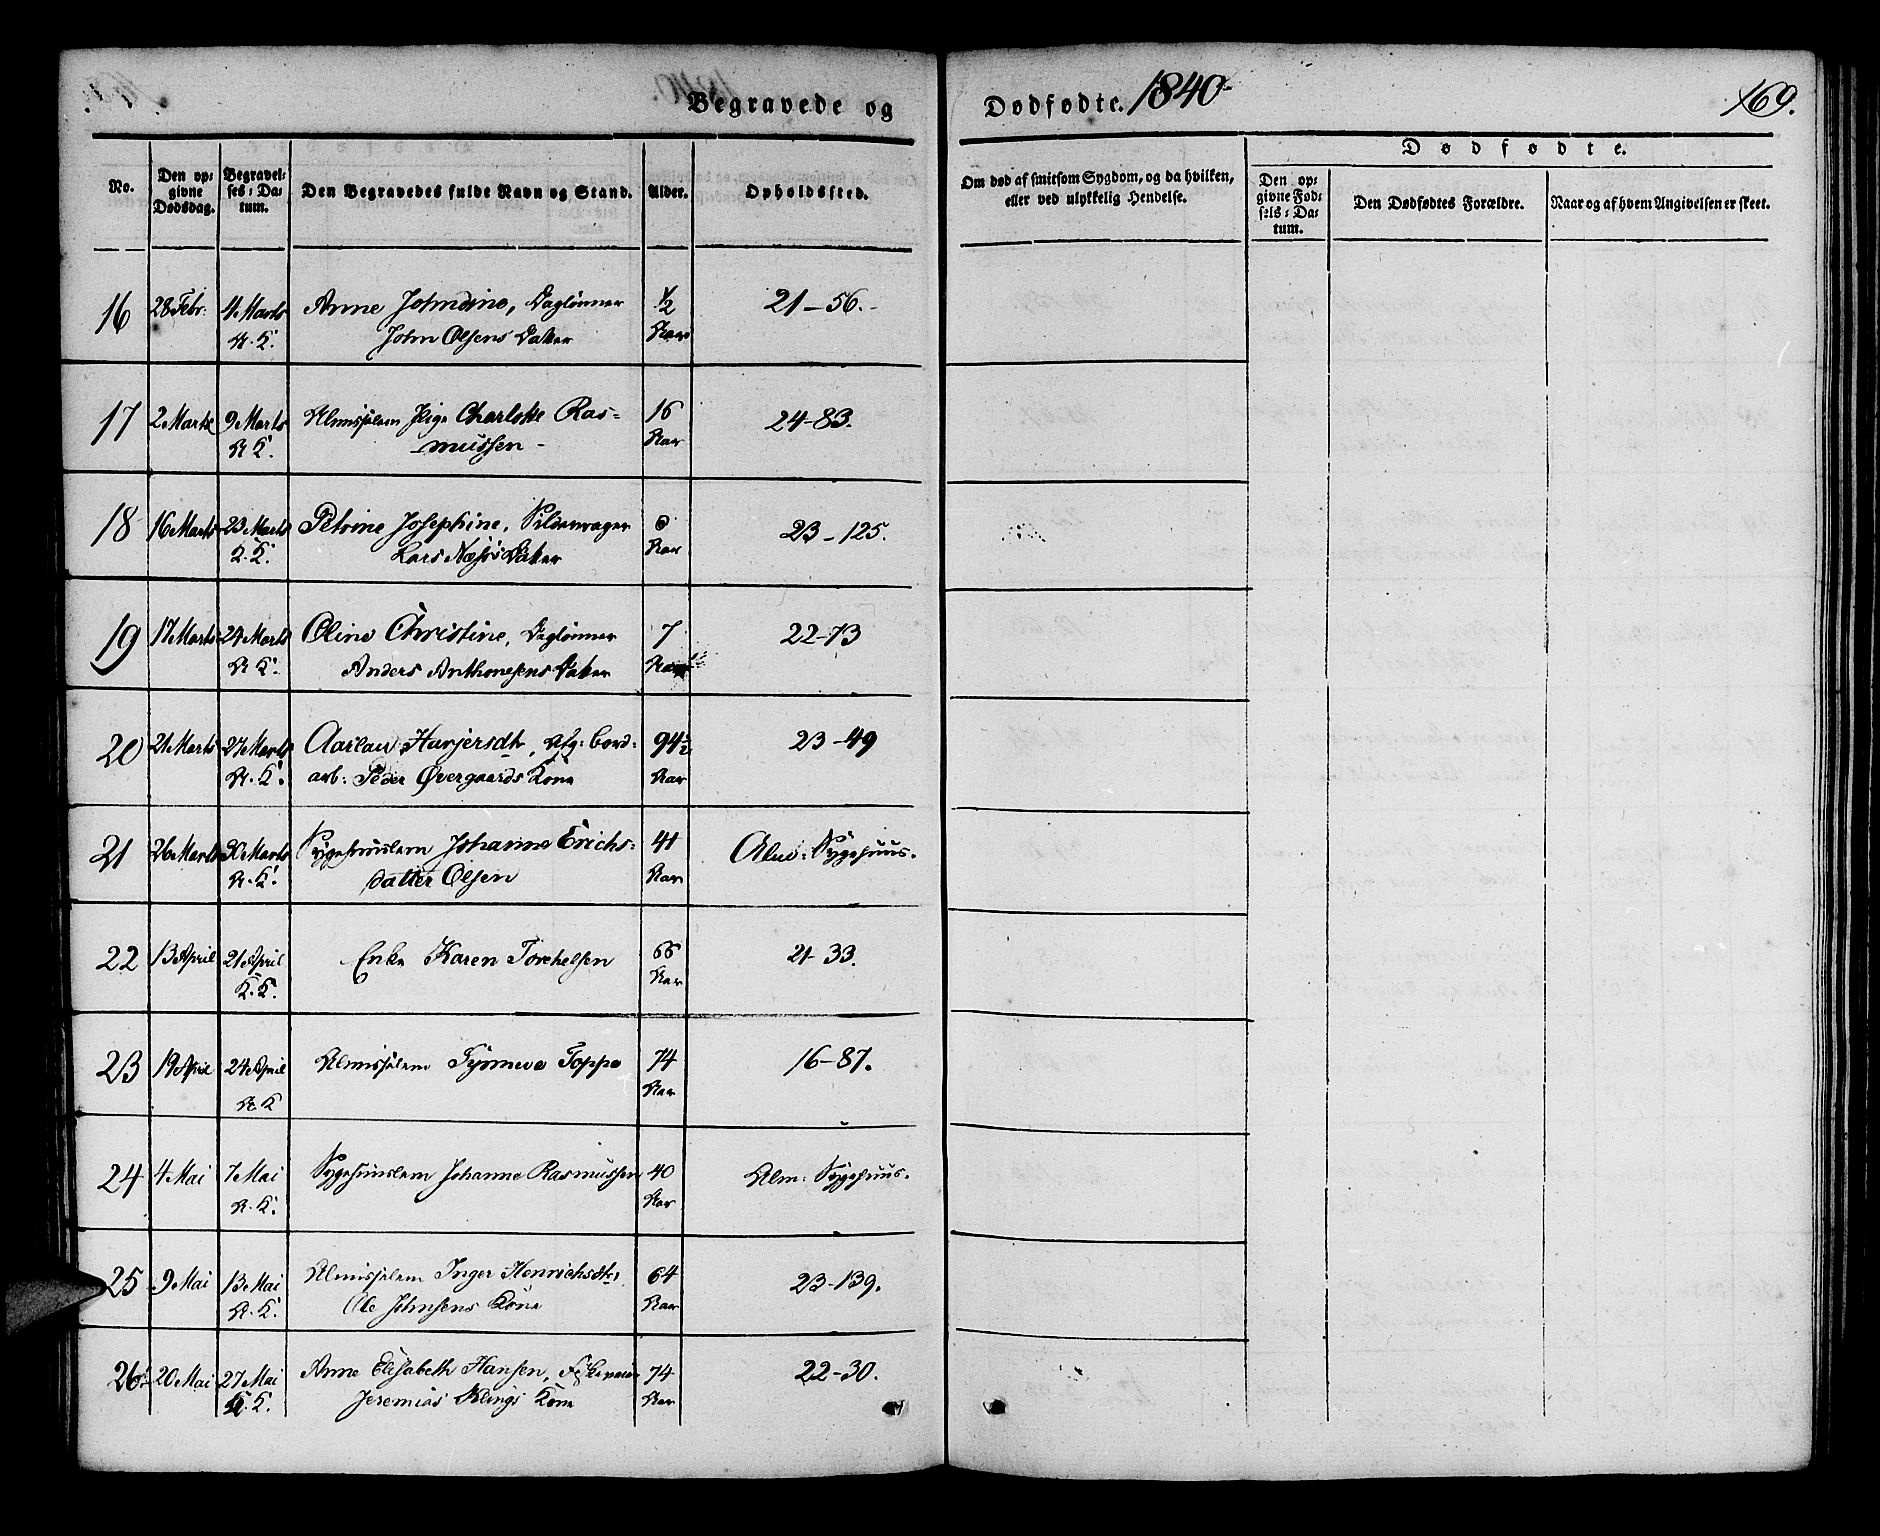 Begravede og Dødfødte. 1840 169.
No. Den opgivne Dødsdag. Begravelses-Datum. Den Begravedes fulde Navn og Stand. Alder. Opholdssted. Om død af smitsom Sygdom, og da hvilken, eller ved ulykkelig Hendelse. Dødfødte. Den opgivne Fødsels-Datum. Den Dødfødtes Forældre. Naar og af hvem Angivelsen er skeet.
16 28 Febr: 4 Marts Anne Johndine, Daglønner ½ 21-56.
K. John Olsens Datter Aar
17 2 Marts 9 Marts Almisselem Pige Charlotte Ras= 16 24-83.
K. mussen - Aar
18 16 Marts 23 Marts Petrine Josephine, Sildevrager 23-125.
K. Lars Næss's Datter Aar
19 17 Marts 24 Marts Oline Christine, Daglønner 7 22-73
K. Anders Anthonesens Datter Aar
20 21 Marts 27 Marts Aarlau Harjersdt, Afg: bord: 94½ 23-49
K. arb: Peder Øvergaards Kone Aar
21 26 Marts 30 Marts Sygehuuslem Johanne Erichs: 41 Alm: Sygehuus.
K. datter Olsen Aar
22 13 April 21 April Enke Karen Torchelsen 66 21-33.
K. K. Aar
23 19 April 24 April Almisselem Toppe 74 16-87.
K Aar
24 4 Mai 7 Mai Sygehuuslem Johanne Rasmussen 40 Alm: Sygehuus.
K. Aar
25 9 Mai 13 Mai Almisselem Inger Henrichsdt: 64 23-139.
K. Ole Johnsens Kone Aar
26 20 Mai 27 Mai Anne Elisabeth Hansen, 74 22-30.
K. Jeremias Klings Kone Aar